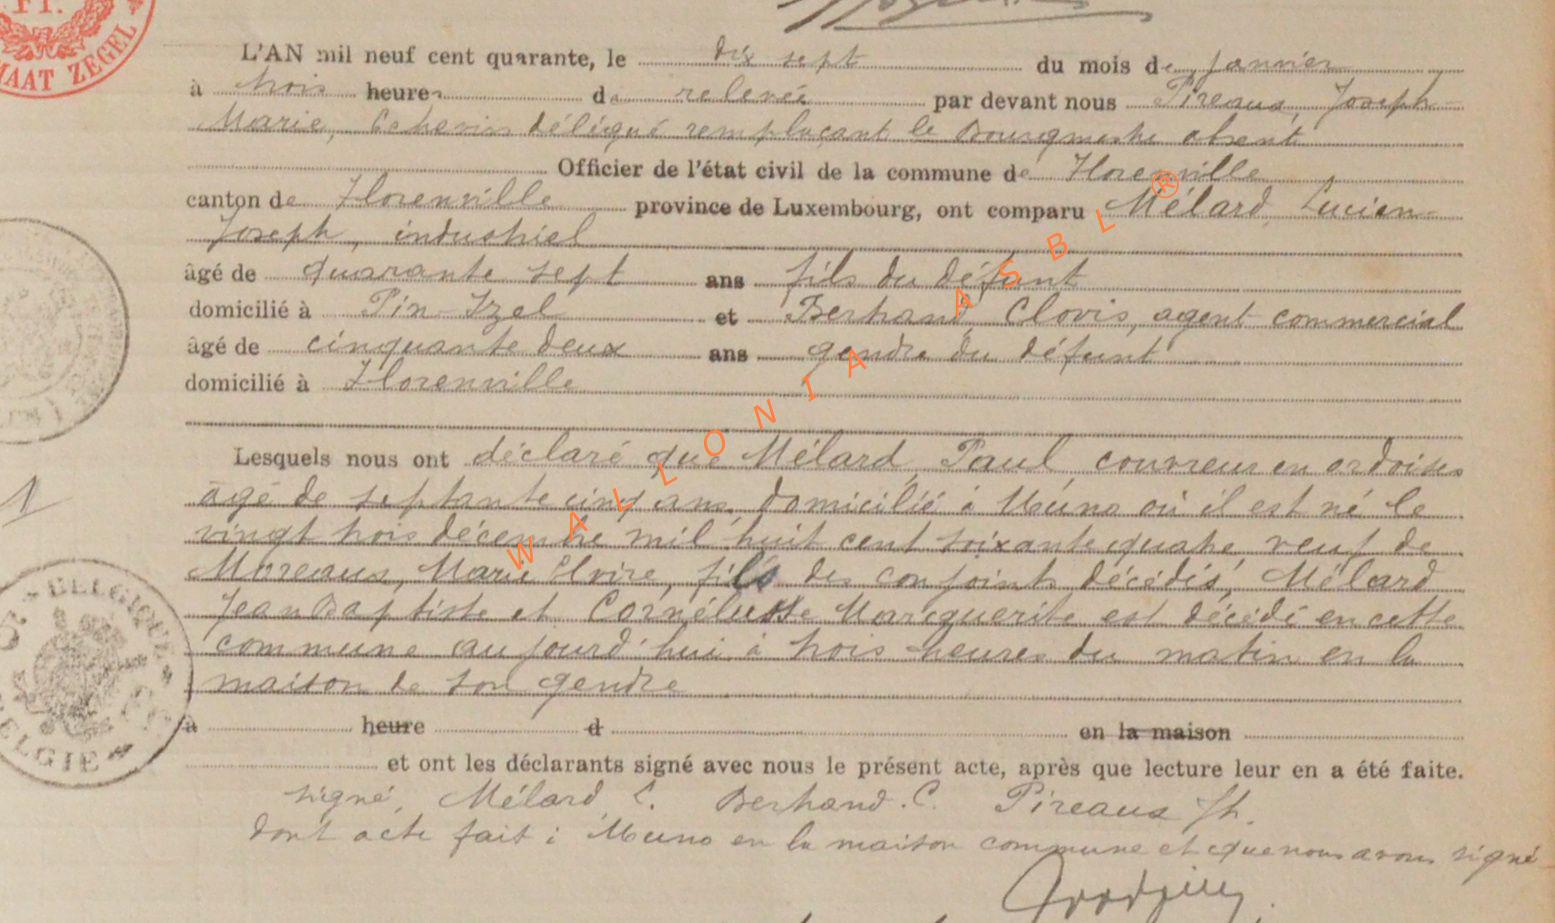 MAAT ZEGEL
L'AN mil neuf cent quarante, le dix sept du mois de janvier
à trois heures de relevée par devant nous Pireaux, Joseph-
Marie, Echevin délégué remplaçant le Bourgmestre absent
Officier de l'état civil de la commune de Florenville
canton de Florenville province de Luxembourg, ont comparu Mélard, Lucien-
Joseph, industriel
âgé de quarante sept ans fils du défunt
domicilié à Pin-Izel et Bertrand, Clovis, agent commercial
âgé de cinquante deux ans gendre du défunt
domicilié à Florenville
Lesquels nous ont déclaré que Mélard, Paul couvreur en ardoises
âgé de septante cinq ans, domicilié à Muno où il est né le
vingt trois décembre mil huit cent soixante quatre, veuf de
Moreaux, Marie Elvire, fils des conjoints décédés, Mélard
Jean Baptiste et Marguerite est décédé en cette
commune aujourd'hui à trois heures du matin en la
maison de son gendre
à heure d en la maison
et ont les déclarants signé avec nous le présent acte, après que lecture leur en a été faite.
signé, Mélard, L. Bertrand. C. Pireaux Jh.
dont acte fait à Muno en la maison commune et que nous avons signé
1
BELGIQUE
BELGIE
WALLONIA ASBL ®